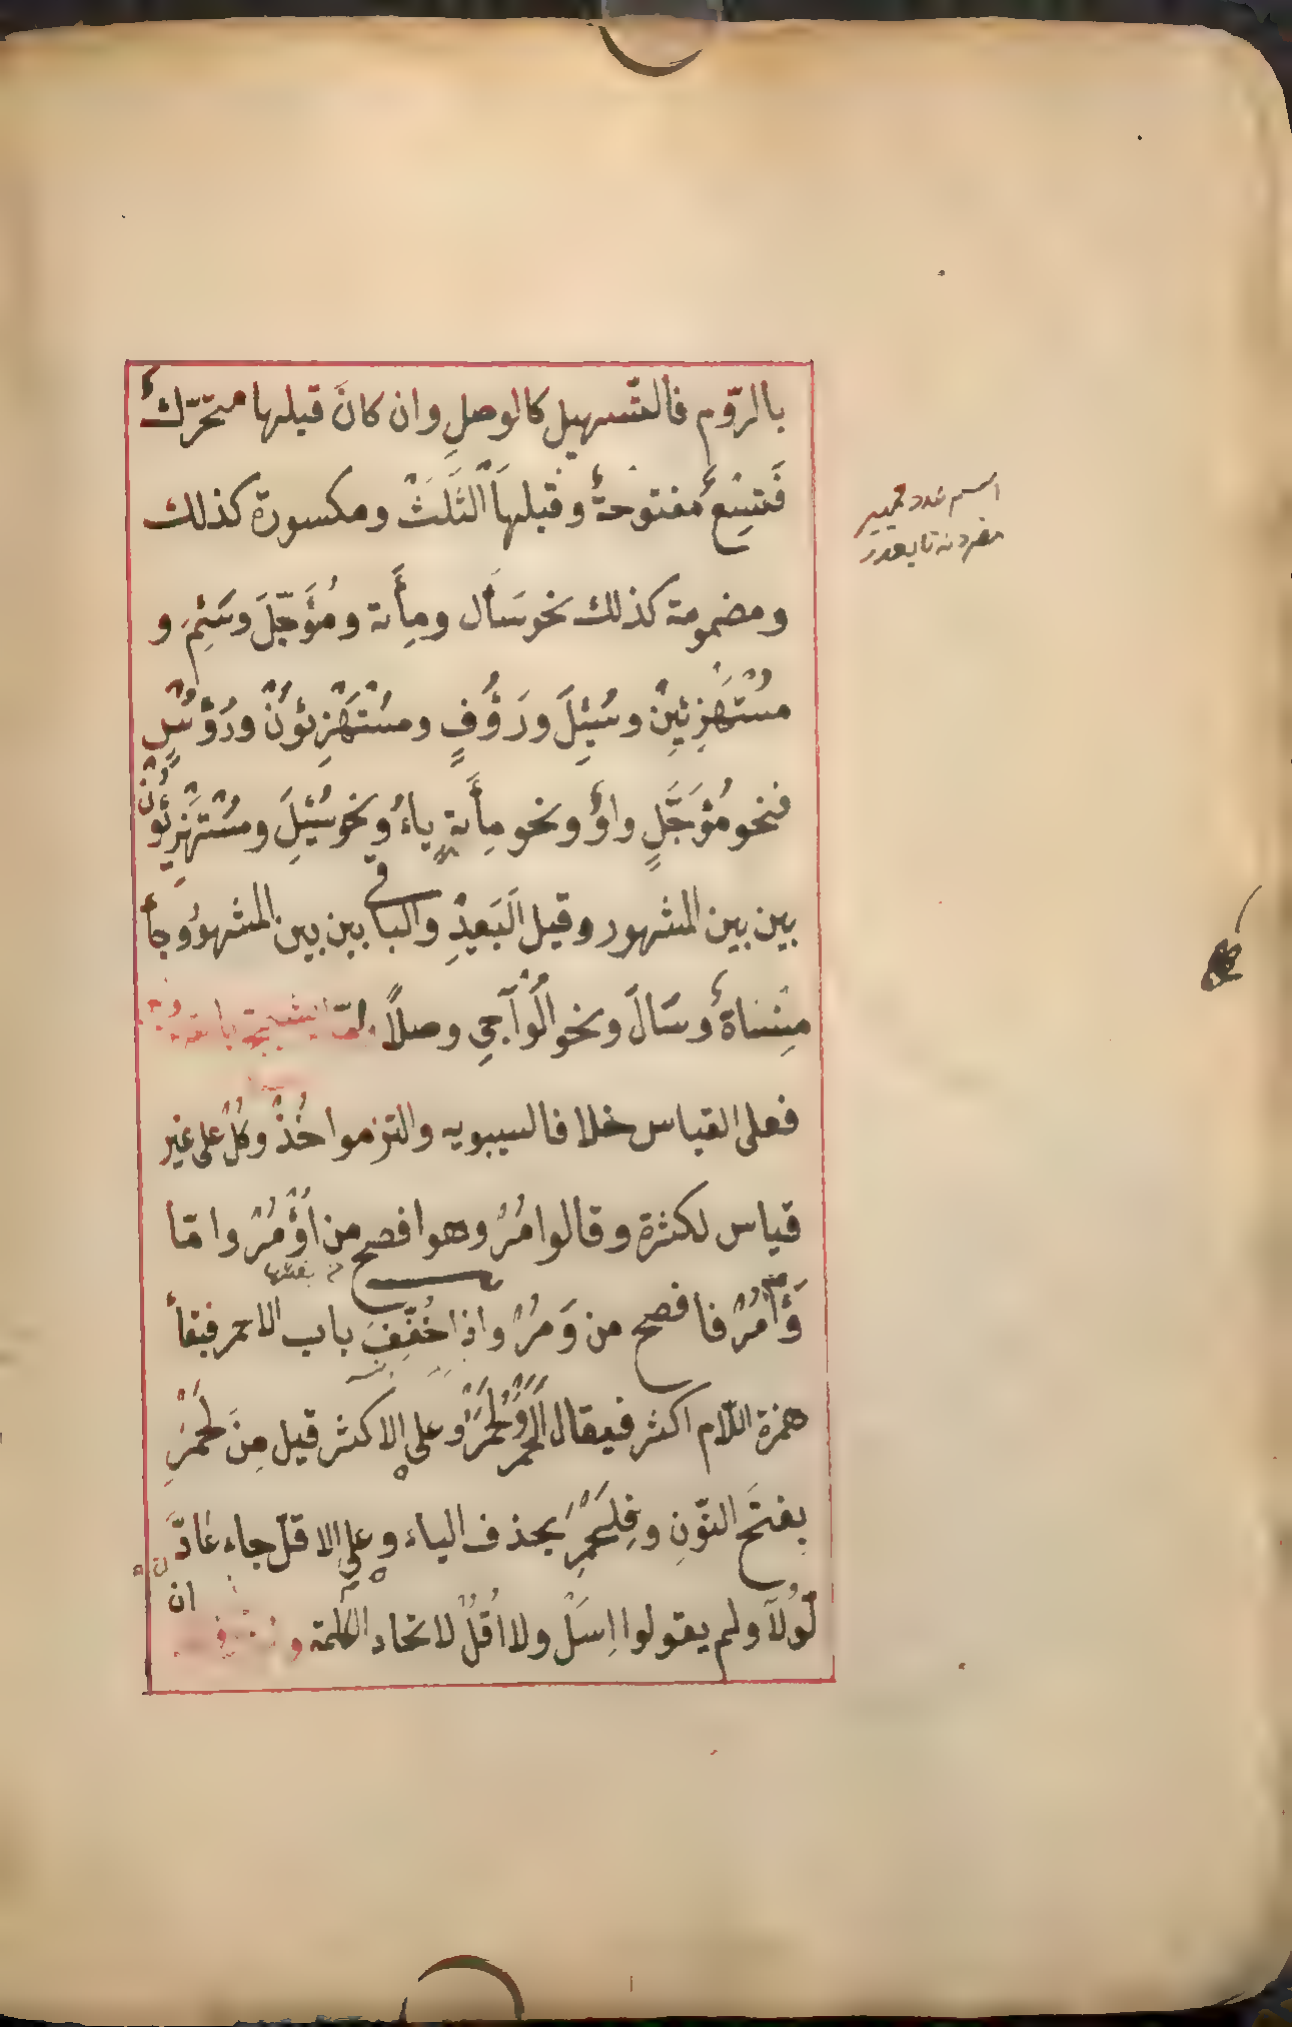 بالرّوم فالتّسهيل كالوصلِ وان كانَ قبلها متحرّكٌ
فَتِسْعٌ مفتوحةٌ وقبلها الثَلَثْ ومكسورة كذلك
اسم عدد تمييز
ومضمومة كذلك نحو سَأَل ومِأَىة ومُؤَجَّلَ وسَئِمَ و
مُسْتَهْزِئِيْنَ وسُئِلَ ورَؤُفٍ ومُسْتَهْزِئوُنْ ورُؤُسٍ
فنحو مُؤَجَّلٍ واوٌ ونحو مِأَىةٍ ياءٌ ونحو سُئِلَ ومُسْتَهْزِئُوْنَ
بين بين المشهور وقيل الَبَعيدِ والباقى بين بين المشهورُ وجاْ
مِنْسَاةٌ وسَالَ ونحو الْوَاجِى وصلاً
فعلى القياس خلافا لسيبويه والتزموا خُذْ وكُلْ على غير
قياس لكثرة وقالوا مُرْ وهو افصح من اُؤْمُرْ وامّا
وَأْمُرْ فافصح من وَمُرْ واذا خُفِّفَ باب الاحمر فبقأ
همزة اللّام اكثر فيقال اَلَحْمَرُ ولَحْمَرُ وعلى الاكثر قيل مِنَ لَحْمَرِ
بفتحَ النّوْنِ وفِلَحْمَرِ بحذف الياء وعلى الاقلّ جاء عَادَ
لُّوْلاَ ولم يقولوا اِسَلْ ولا اُقُلْ لاتحاد الكلمة